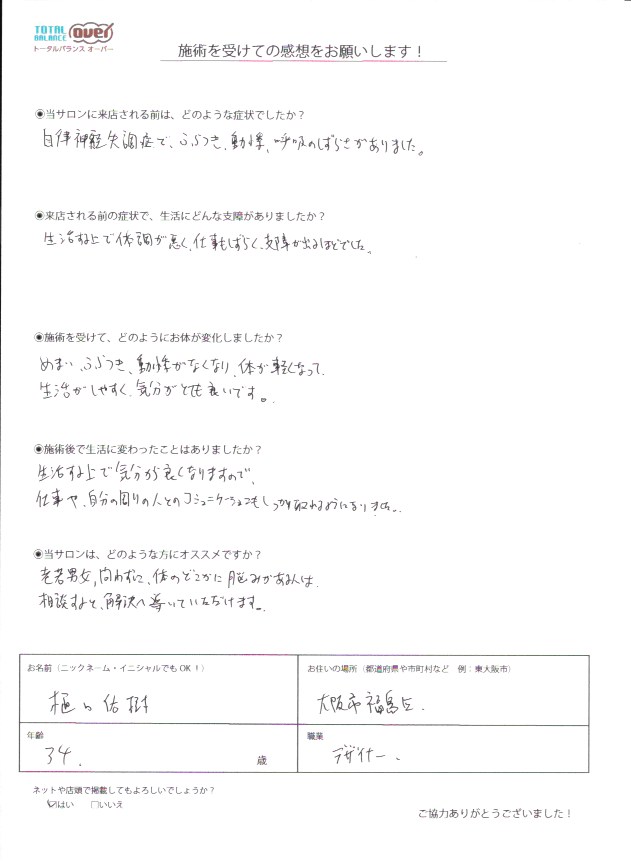 TOTAL BALANCE over
トータルバランス オーバー
施術を受けての感想をお願いします！
◉当サロンに来店される前は、どのような症状でしたか？
自律神経失調症で、ふらつき、動悸、呼吸のしずらさがありました。
◉来店される前の症状で、生活にどんな支障がありましたか？
生活する上で体調が悪く、仕事もしずらく、支障が出るほどでした。
◉施術を受けて、どのようにお体が変化しましたか？
めまい、ふらつき、動悸がなくなり、体が軽くなって、
生活がしやすく、気分がとても良いです。
◉施術後で生活に変わったことはありましたか？
生活する上で気分が良くなりますので、
仕事や、自分の周りの人とのコミュニケーションもしっかり取れるようになりました。
◉当サロンは、どのような方にオススメですか？
老若男女、問わずに、体のどこかに悩みがある人は、
相談すると、解決へ導いていただけます。
お名前（ニックネーム・イニシャルでもOK！）
樋口 佑樹
お住いの場所（都道府県や市町村など 例：東大阪市）
大阪市福島区.
年齢
34. 歳
職業
デザイナー.
ネットや店頭で掲載してもよろしいでしょうか？
☑はい □いいえ
ご協力ありがとうございました！